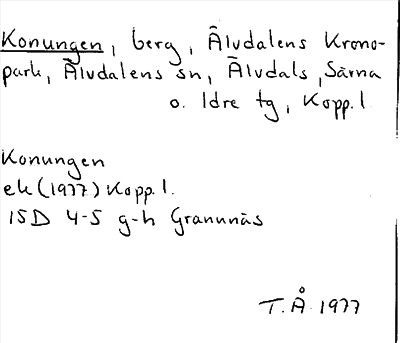 Konungen, berg, Älvdalens Krono-
park, Älvdalens sn, Älvdals, Särna
o. Idre tg, Kopp.l.
Konungen
ek (1977) Kopp.l.
15D 4-5 g-h Granunäs
T.Å 1977